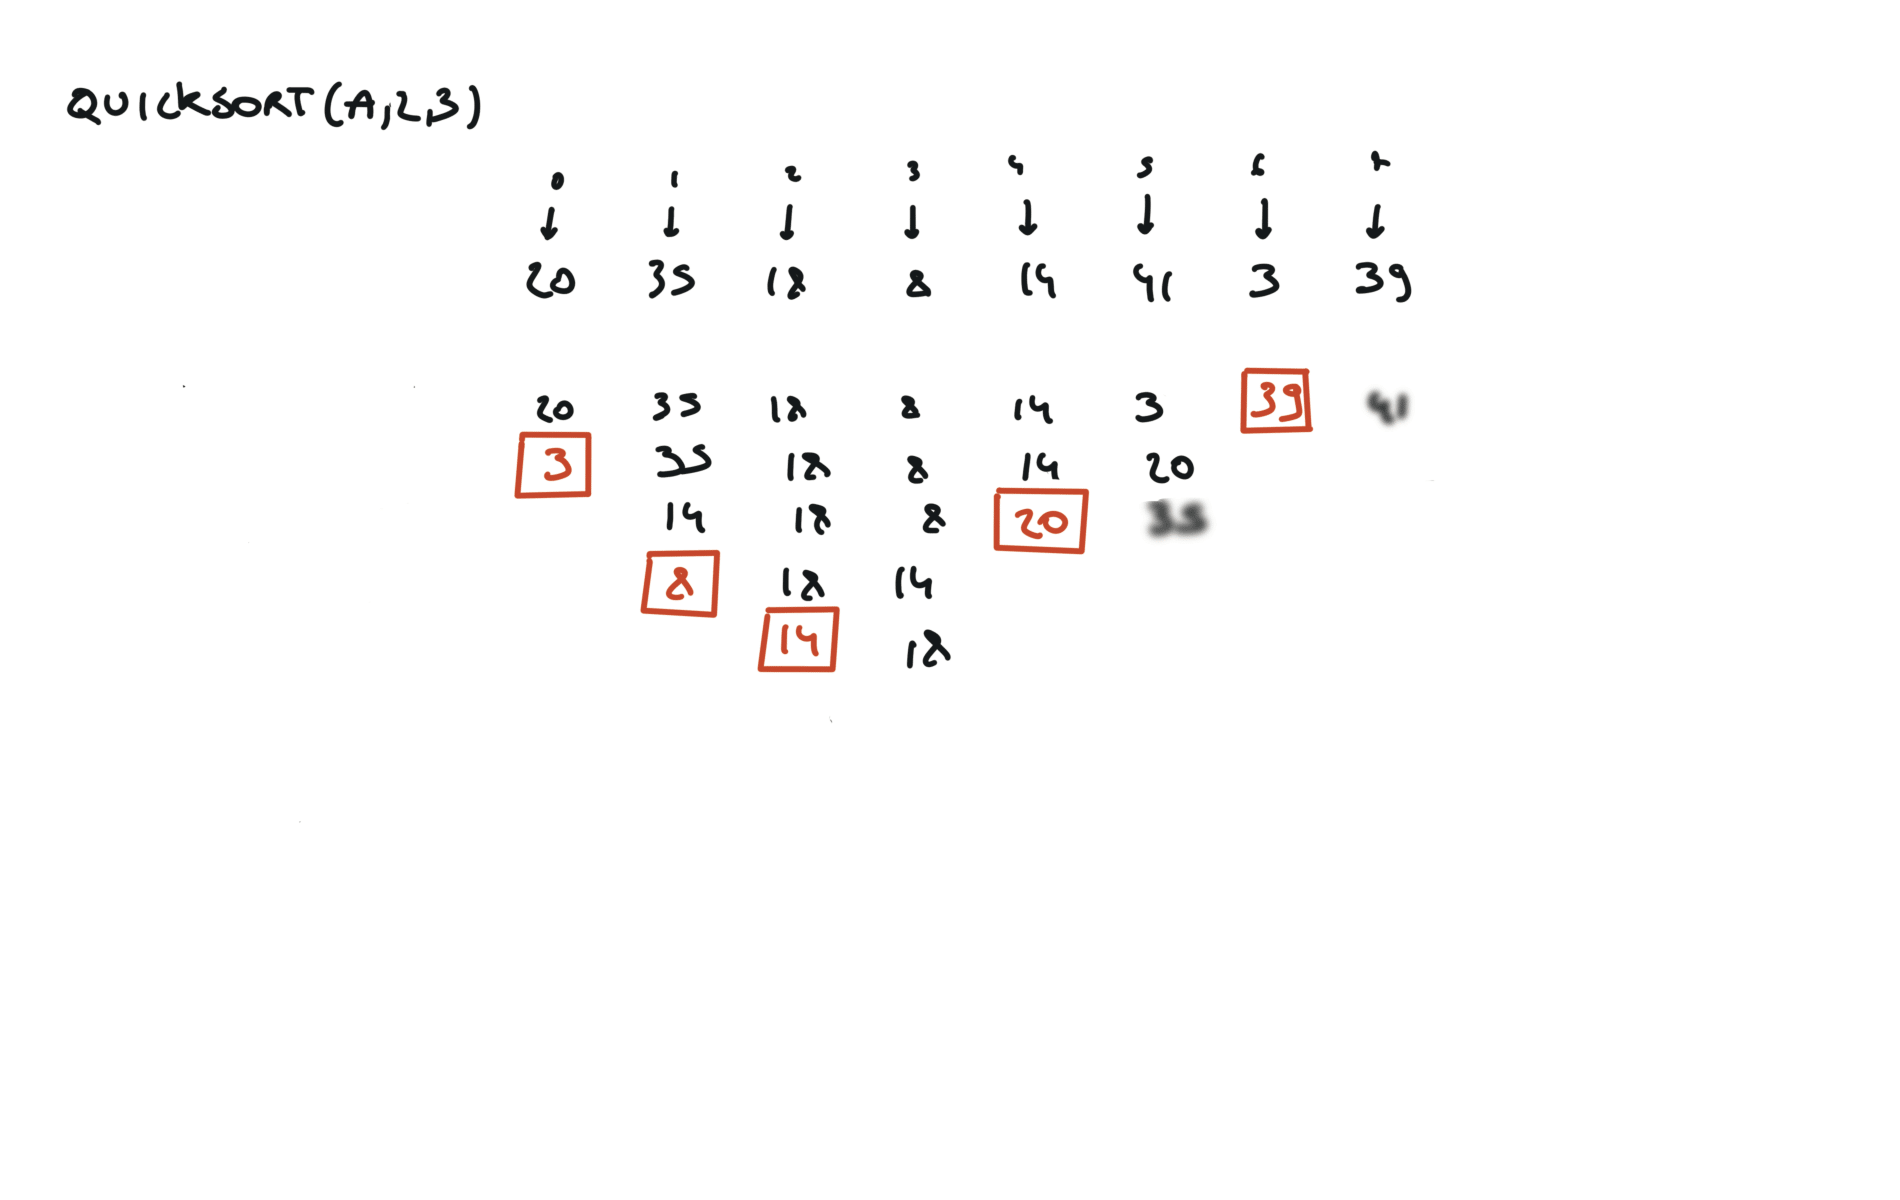 QUICKSORT(A,2,3)
0 1 2 3 4 5 6 7
20 35 18 8 14 41 3 39
20 35 18 8 14 3 39 41
3 35 18 8 14 20
14 18 8 20 35
8 18 14
14 18